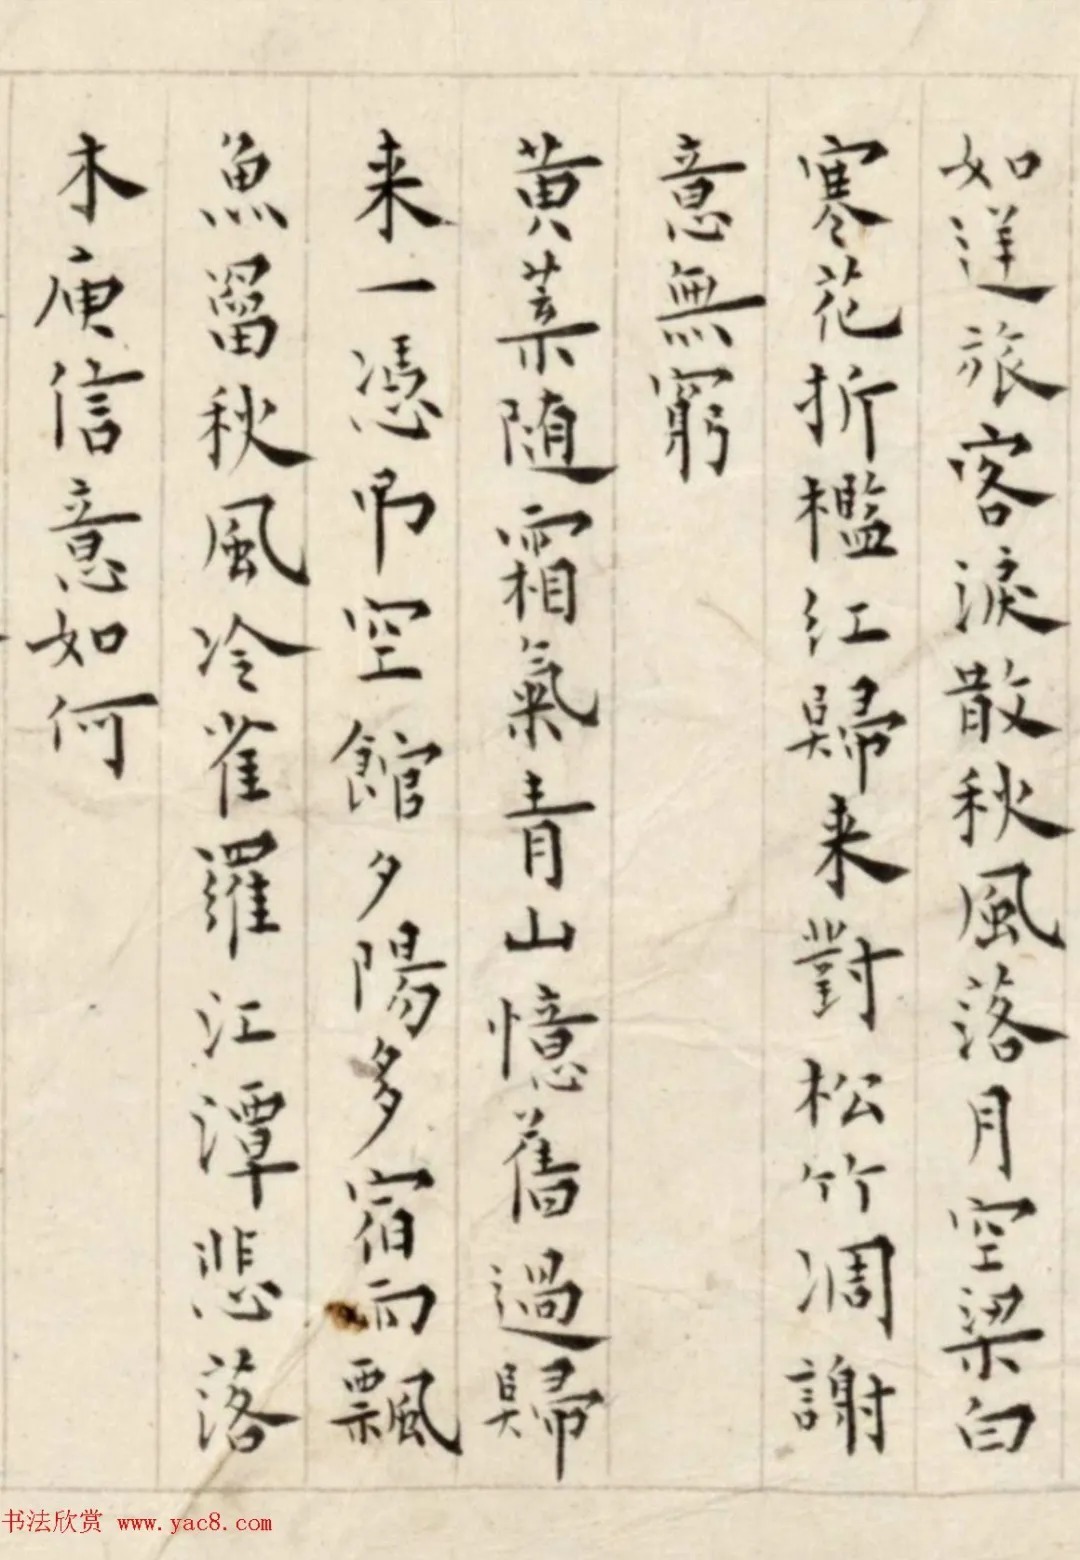 如逆旅客淚散秋風落月空梁白
寒花折檻紅歸来對松竹凋謝
意無窮
黄葉随霜氣青山憶舊過歸
来一憑弔空館夕陽多宿雨飄
魚罶秋風冷雀羅江潭悲落
木庾信意如何
书法欣赏 www.yac8.com